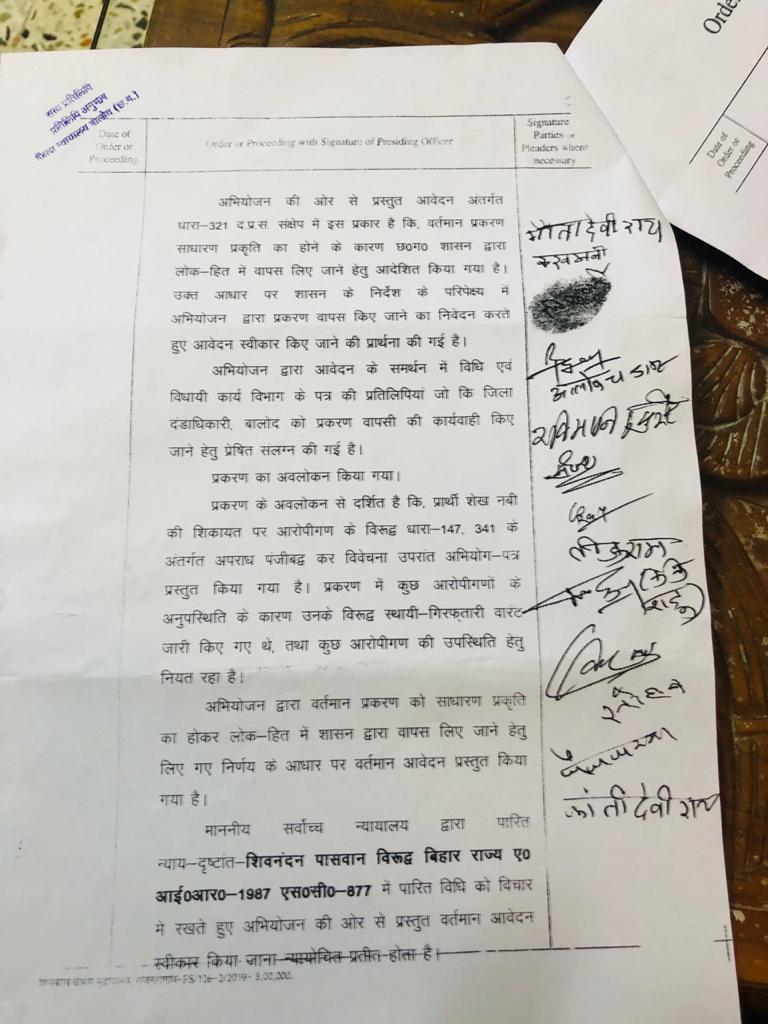 सत्य प्रतिलिपि
प्रतिलिपि अनुभाग
जिला न्यायालय बालोद (छ.ग.)
Date of
Order or
Proceeding
Order or Proceeding with Signature of Presiding Officer
Signature
Parties or
Pleaders where
necessary
Orde
Date of
Order or
Proceeding
अभियोजन की ओर से प्रस्तुत आवेदन अंतर्गत
धारा–321 द.प्र.सं. संक्षेप में इस प्रकार है कि, वर्तमान प्रकरण
साधारण प्रकृति का होने के कारण छ0ग0 शासन द्वारा
लोक–हित में वापस लिए जाने हेतु आदेशित किया गया है।
उक्त आधार पर शासन के निर्देश के परिपेक्ष्य में
अभियोजन द्वारा प्रकरण वापस किए जाने का निवेदन करते
हुए आवेदन स्वीकार किए जाने की प्रार्थना की गई है।
अभियोजन द्वारा आवेदन के समर्थन में विधि एवं
विधायी कार्य विभाग के पत्र की प्रतिलिपियां जो कि जिला
दंडाधिकारी, बालोद को प्रकरण वापसी की कार्यवाही किए
जाने हेतु प्रेषित संलग्न की गई है।
प्रकरण का अवलोकन किया गया।
प्रकरण के अवलोकन से दर्शित है कि, प्रार्थी शेख नबी
की शिकायत पर आरोपीगण के विरूद्व धारा–147, 341 के
अंतर्गत अपराध पंजीबद्व कर विवेचना उपरांत अभियोग–पत्र
प्रस्तुत किया गया है। प्रकरण में कुछ आरोपीगणों के
अनुपस्थिति के कारण उनके विरूद्व स्थायी–गिरफ्तारी वारंट
जारी किए गए थे, तथा कुछ आरोपीगण की उपस्थिति हेतु
नियत रहा है।
अभियोजन द्वारा वर्तमान प्रकरण को साधारण प्रकृति
का होकर लोक–हित में शासन द्वारा वापस लिए जाने हेतु
लिए गए निर्णय के आधार पर वर्तमान आवेदन प्रस्तुत किया
गया है।
माननीय सर्वोच्च न्यायालय द्वारा पारित
न्याय–दृष्टांत–शिवनंदन पासवान विरूद्व बिहार राज्य ए0
आई0आर0–1987 एस0सी0–877 में पारित विधि को विचार
में रखते हुए अभियोजन की ओर से प्रस्तुत वर्तमान आवेदन
स्वीकार किया जाना न्यायोचित प्रतीत होता है।
देवी राय
कांती देवी राय